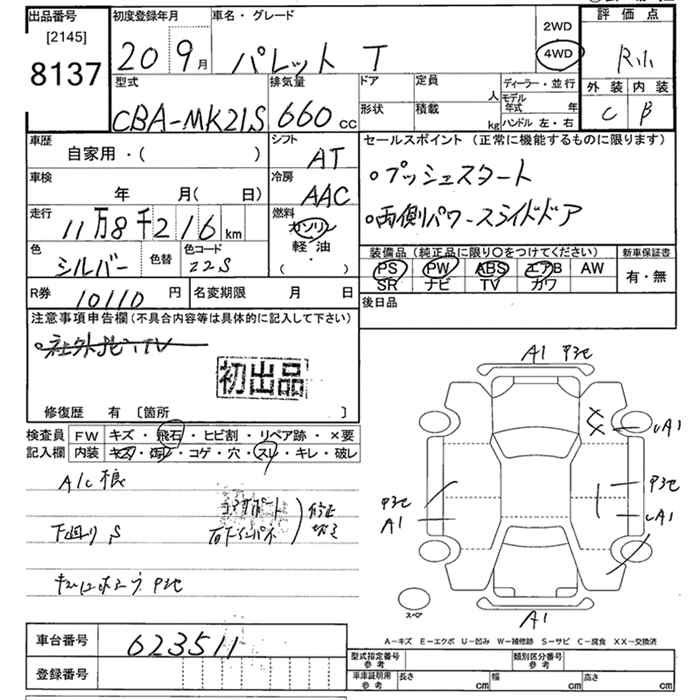 出品番号
[2145]
8137
初度登録年月
20 9月
車名・グレード
パレット T
2WD
4WD
評価点
R小
外装 内装
C B
型式
CBA-MK21S
排気量
660 cc
ドア
定員
人
形状
積載
kg
ディーラー・並行
モデル年式 年
ハンドル 左・右
車歴
自家用・( )
シフト
AT
車検
年 月( 日)
冷房
AAC
走行
11万8千216km
燃料
ガソリン
軽油
( ・ )
色
シルバー
色替
色コード
Z2S
R券
10110 円
名変期限 月 日
セールスポイント (正常に機能するものに限ります)
○プッシュスタート
○両側パワースライドドア
装備品 (純正品に限り○をつけてください)
新車保証書
PS PW ABS エアB AW
SR ナビ TV カワ
有・無
後日品
注意事項申告欄(不具合内容等は具体的に記入して下さい)
初出品
修復歴 有 [箇所 ]
検査員 FW キズ・飛石・ヒビ割・リペア跡・×要
記入欄 内装 キズ・汚れ・コゲ・穴・スレ・キレ・破レ
A/C
下廻り S
コアサポート
右下インパネ
修正
A1
A1
A1
A1
A1
スペア
A－キズ E－エクボ U－凹み W－補修跡 S－サビ C－腐食 XX－交換済
車台番号
623511
登録番号
型式指定番号 参考
類別区分番号 参考
車庫証明用 参考
長さ cm
幅 cm
高さ cm